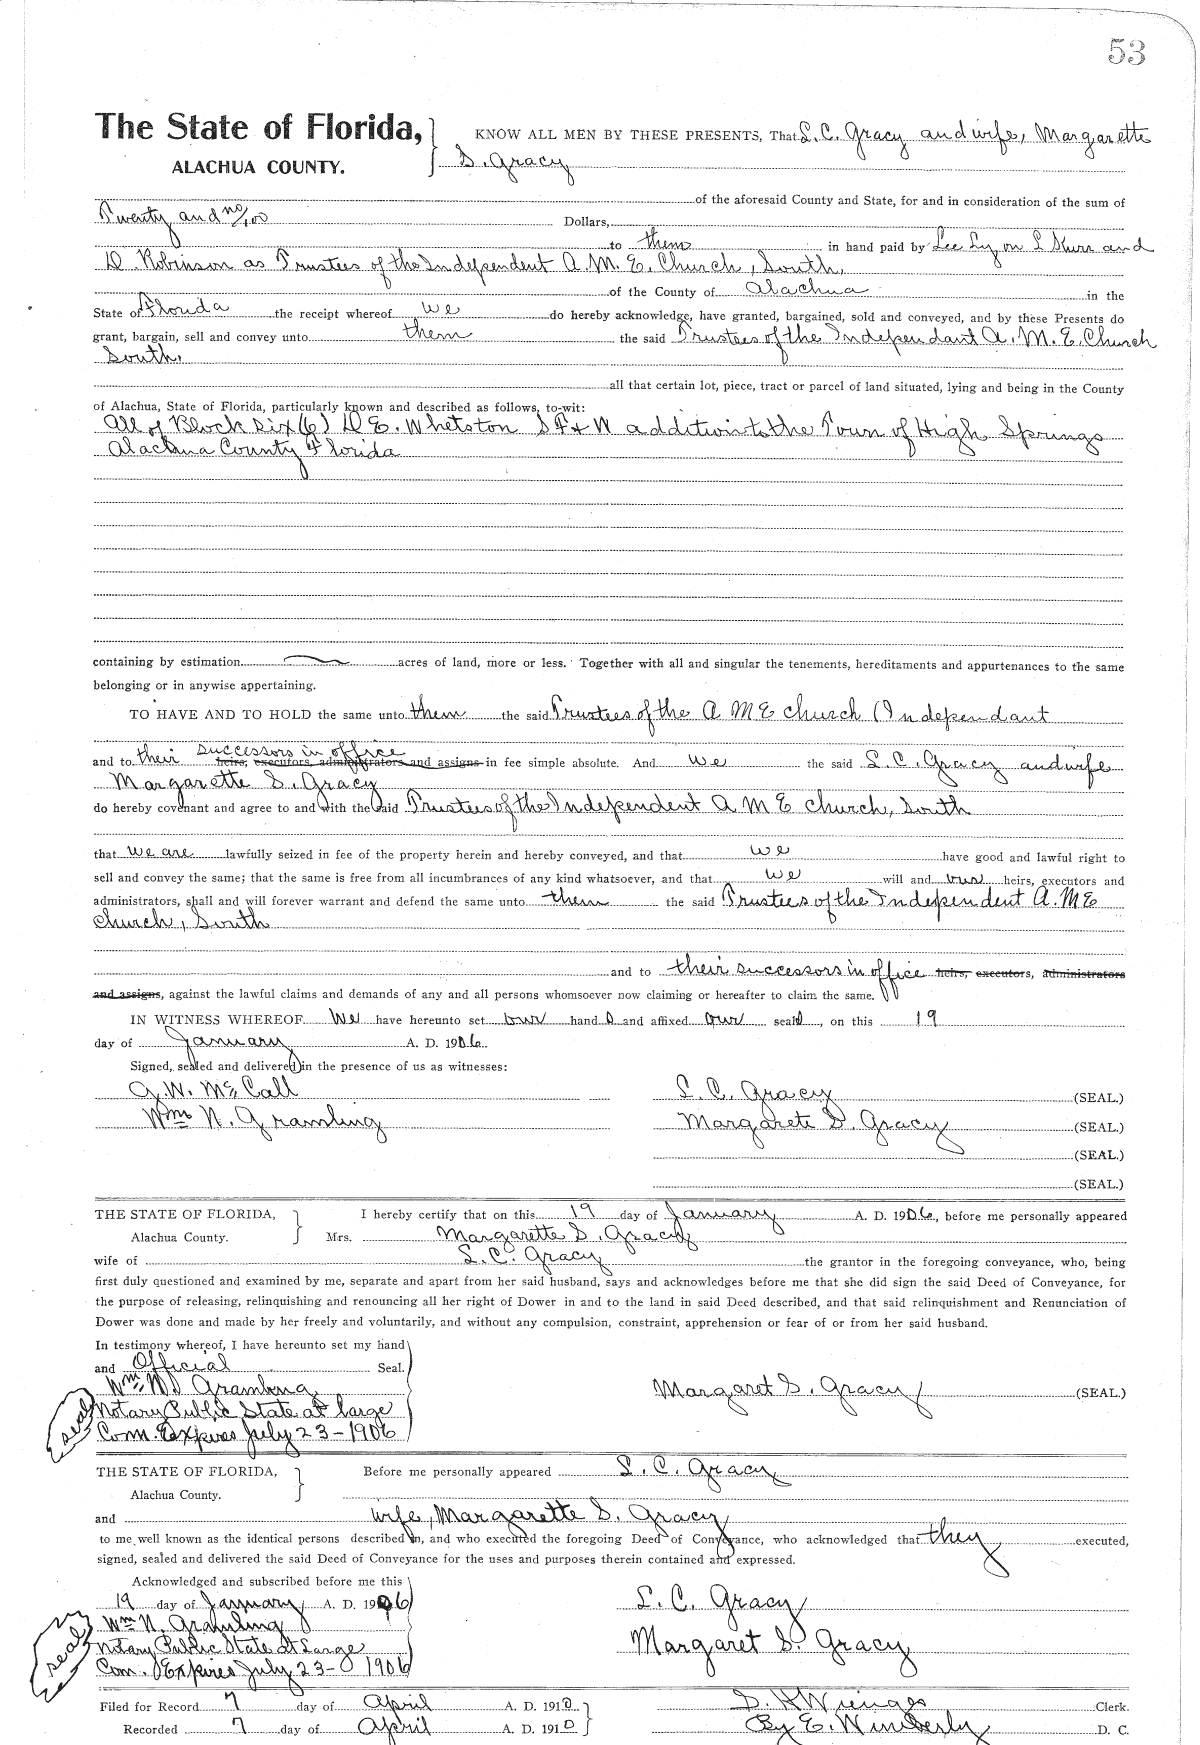 53
The State of Florida,
ALACHUA COUNTY.
KNOW ALL MEN BY THESE PRESENTS, That L. C. Gracy and wife, Margarette
S. Gracy
of the aforesaid County and State, for and in consideration of the sum of
Twenty and no/100 Dollars,
to them in hand paid by Lee Lyon L and
D. Robinson as Trustees of the Independent A. M. E. Church, South,
of the County of Alachua in the
State of Florida the receipt whereof we do hereby acknowledge, have granted, bargained, sold and conveyed, and by these Presents do
grant, bargain, sell and convey unto them the said Trustees of the Independant A. M. E. Church
South.
all that certain lot, piece, tract or parcel of land situated, lying and being in the County
of Alachua, State of Florida, particularly known and described as follows, to-wit:
All of Block six (6) D E. Whetston S F & W addition to the Town of High Springs
Alachua County Florida
containing by estimation acres of land, more or less. Together with all and singular the tenements, hereditaments and appurtenances to the same
belonging or in anywise appertaining.
TO HAVE AND TO HOLD the same unto them the said Trustees of the A M E church (Independant
successors in office
and to their heirs, executors, administrators and assigns in fee simple absolute. And we the said L. C. Gracy and wife
Margarette S. Gracy
do hereby covenant and agree to and with the said Trustees of the Independent A M E church, South
that we are lawfully seized in fee of the property herein and hereby conveyed, and that we have good and lawful right to
sell and convey the same; that the same is free from all incumbrances of any kind whatsoever, and that we will and our heirs, executors and
administrators, shall and will forever warrant and defend the same unto them the said Trustees of the Independent A. M E
church, South
and to their successors in office heirs, executors, administrators
and assigns, against the lawful claims and demands of any and all persons whomsoever now claiming or hereafter to claim the same.
IN WITNESS WHEREOF We have hereunto set our hand s and affixed our seals, on this 19
day of January A. D. 1906.
Signed, sealed and delivered in the presence of us as witnesses:
G. W. McCall L. C. Gracy (SEAL.)
Wm N. Gramling Margarete S. Gracy (SEAL.)
(SEAL.)
(SEAL.)
THE STATE OF FLORIDA, I hereby certify that on this 19 day of January A. D. 1906, before me personally appeared
Alachua County. Mrs. Margarette S. Gracy
wife of L. C. Gracy the grantor in the foregoing conveyance, who, being
first duly questioned and examined by me, separate and apart from her said husband, says and acknowledges before me that she did sign the said Deed of Conveyance, for
the purpose of releasing, relinquishing and renouncing all her right of Dower in and to the land in said Deed described, and that said relinquishment and Renunciation of
Dower was done and made by her freely and voluntarily, and without any compulsion, constraint, apprehension or fear of or from her said husband.
In testimony whereof, I have hereunto set my hand
and Official Seal.
Wm N Gramling Margaret S. Gracy (SEAL.)
seal Notary Public State at large
Com. Expires July 23-1906
THE STATE OF FLORIDA, Before me personally appeared L. C. Gracy
Alachua County.
and wife, Margarette S. Gracy
to me well known as the identical persons described in, and who executed the foregoing Deed of Conveyance, who acknowledged that they executed,
signed, sealed and delivered the said Deed of Conveyance for the uses and purposes therein contained and expressed.
Acknowledged and subscribed before me this
19 day of January A. D. 1906 L. C. Gracy
Wm N. Gramling
seal Notary Public State at Large Margaret S. Gracy
Com. Expires July 23-1906
Filed for Record 7 day of April A. D. 1910 Clerk.
Recorded 7 day of April A. D. 1910 By E. Wimberly D. C.